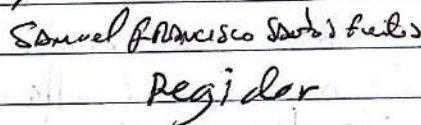 Samuel Francisco Santos Freitas
Regidor